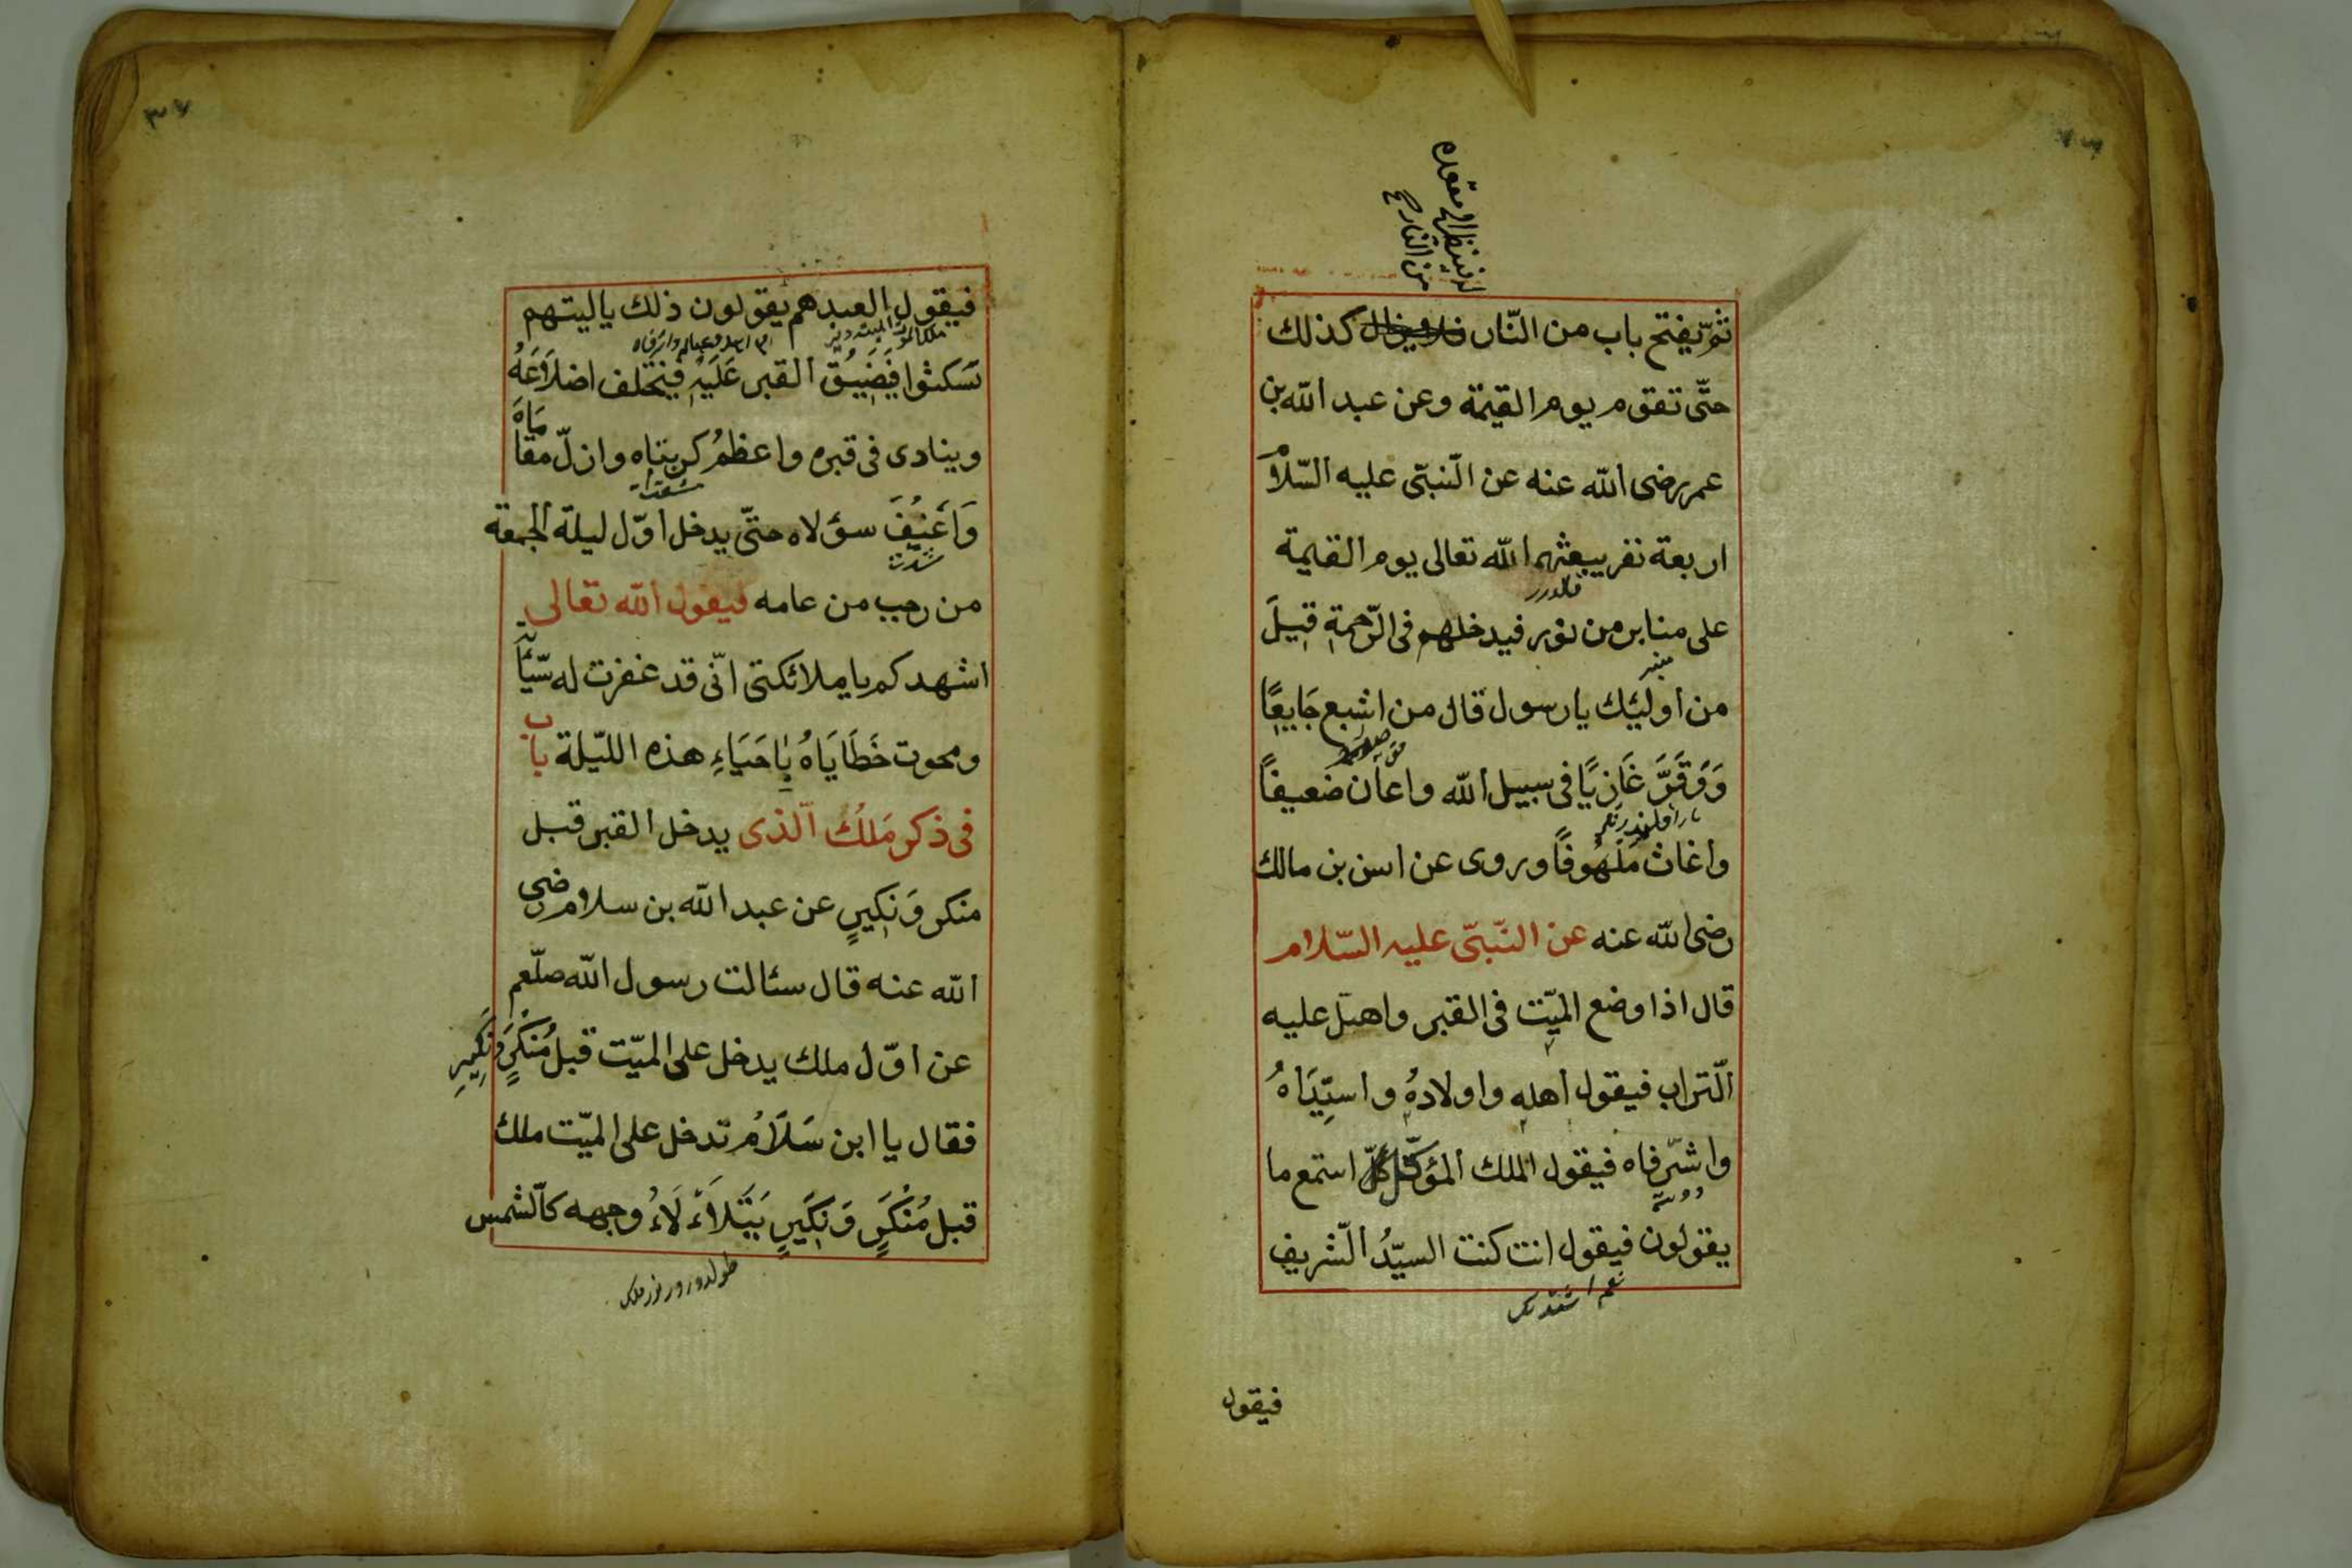 لينظر الى مقعده
من النار صح
ثمّ يفتح باب من النّار كذلك
حتّى تقوم يوم القيمة وعن عبد الله بن
عمر رضى الله عنه عن النّبىّ عليه السّلام
اربعة نفر يبعثهم الله تعالى يوم القيمة
على منابر من نور فيدخلهم فى الرّحمة قيل
منبر
من اولئك يا رسول قال من اشبع جَايِعًا
وَوَقَوَّ غَازِيًا فى سبيل الله واعان ضعيفاً
واغاث مَلْهُوفًا وروى عن انس بن مالك
رضى الله عنه عن النّبىّ عليه السّلام
قال اذا وضع الميّت فى القبر واهيل عليه
الّتراب فيقول اهله واولادهُ واسيِّدَاهُ
واشرّفاه فيقول الملك المؤكّل استمع ما
يقولون فيقول انت كنت السيّدُ الّشريف
فيقول
فيقول العبد هم يقولون ذلك ياليتهم
تسكتوا فَيُضَيِّقُ القبر عَلَيْهِ فيختلف اضلاَعَهُ
وينادى فى قبره واعظمُ كربتاه واذلّ مقامَاهَ
وَاَعْنِيفَ سؤلاه حتّى يدخل اوّل ليلة الجمعة
شدت
من رجب من عامه فيقول الله تعالى
اشهدكم يا ملائكتى انّى قد غفرت له سيّأته
ومحوت خَطَايَاهُ بِاحَيَاءِ هذه الليّلة باب
فى ذكر مَلَكْ الّذى يدخل القبر قبل
منكر وَنَكِيرٍ عن عبد الله بن سلام رضى
الله عنه قال سئالت رسول الله صلّعم
عن اوّل ملك يدخل على الميّت قبل مُنْكَرٍ وَنَكِيرِ
فقال يا ابن سَلَامُ تدخل على الميّت ملك
قبل مُنْكَرٍ وَنَكَيرٍ يَتَلَاَءْ لَاءُ وجهه كالّشمس